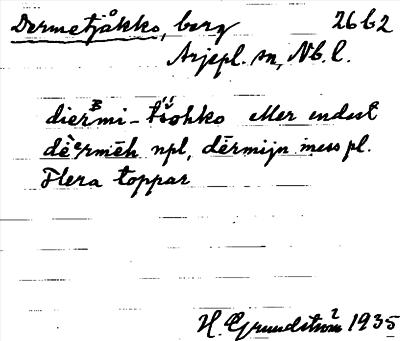 Dermetjåkko, berg 26b2
Arjepl. sn, Nb. l.
dierᴮmi-tšohko eller endast
dèᵉrmēh npl, dērmijn iness pl.
Flera toppar
H. Grundström 1935